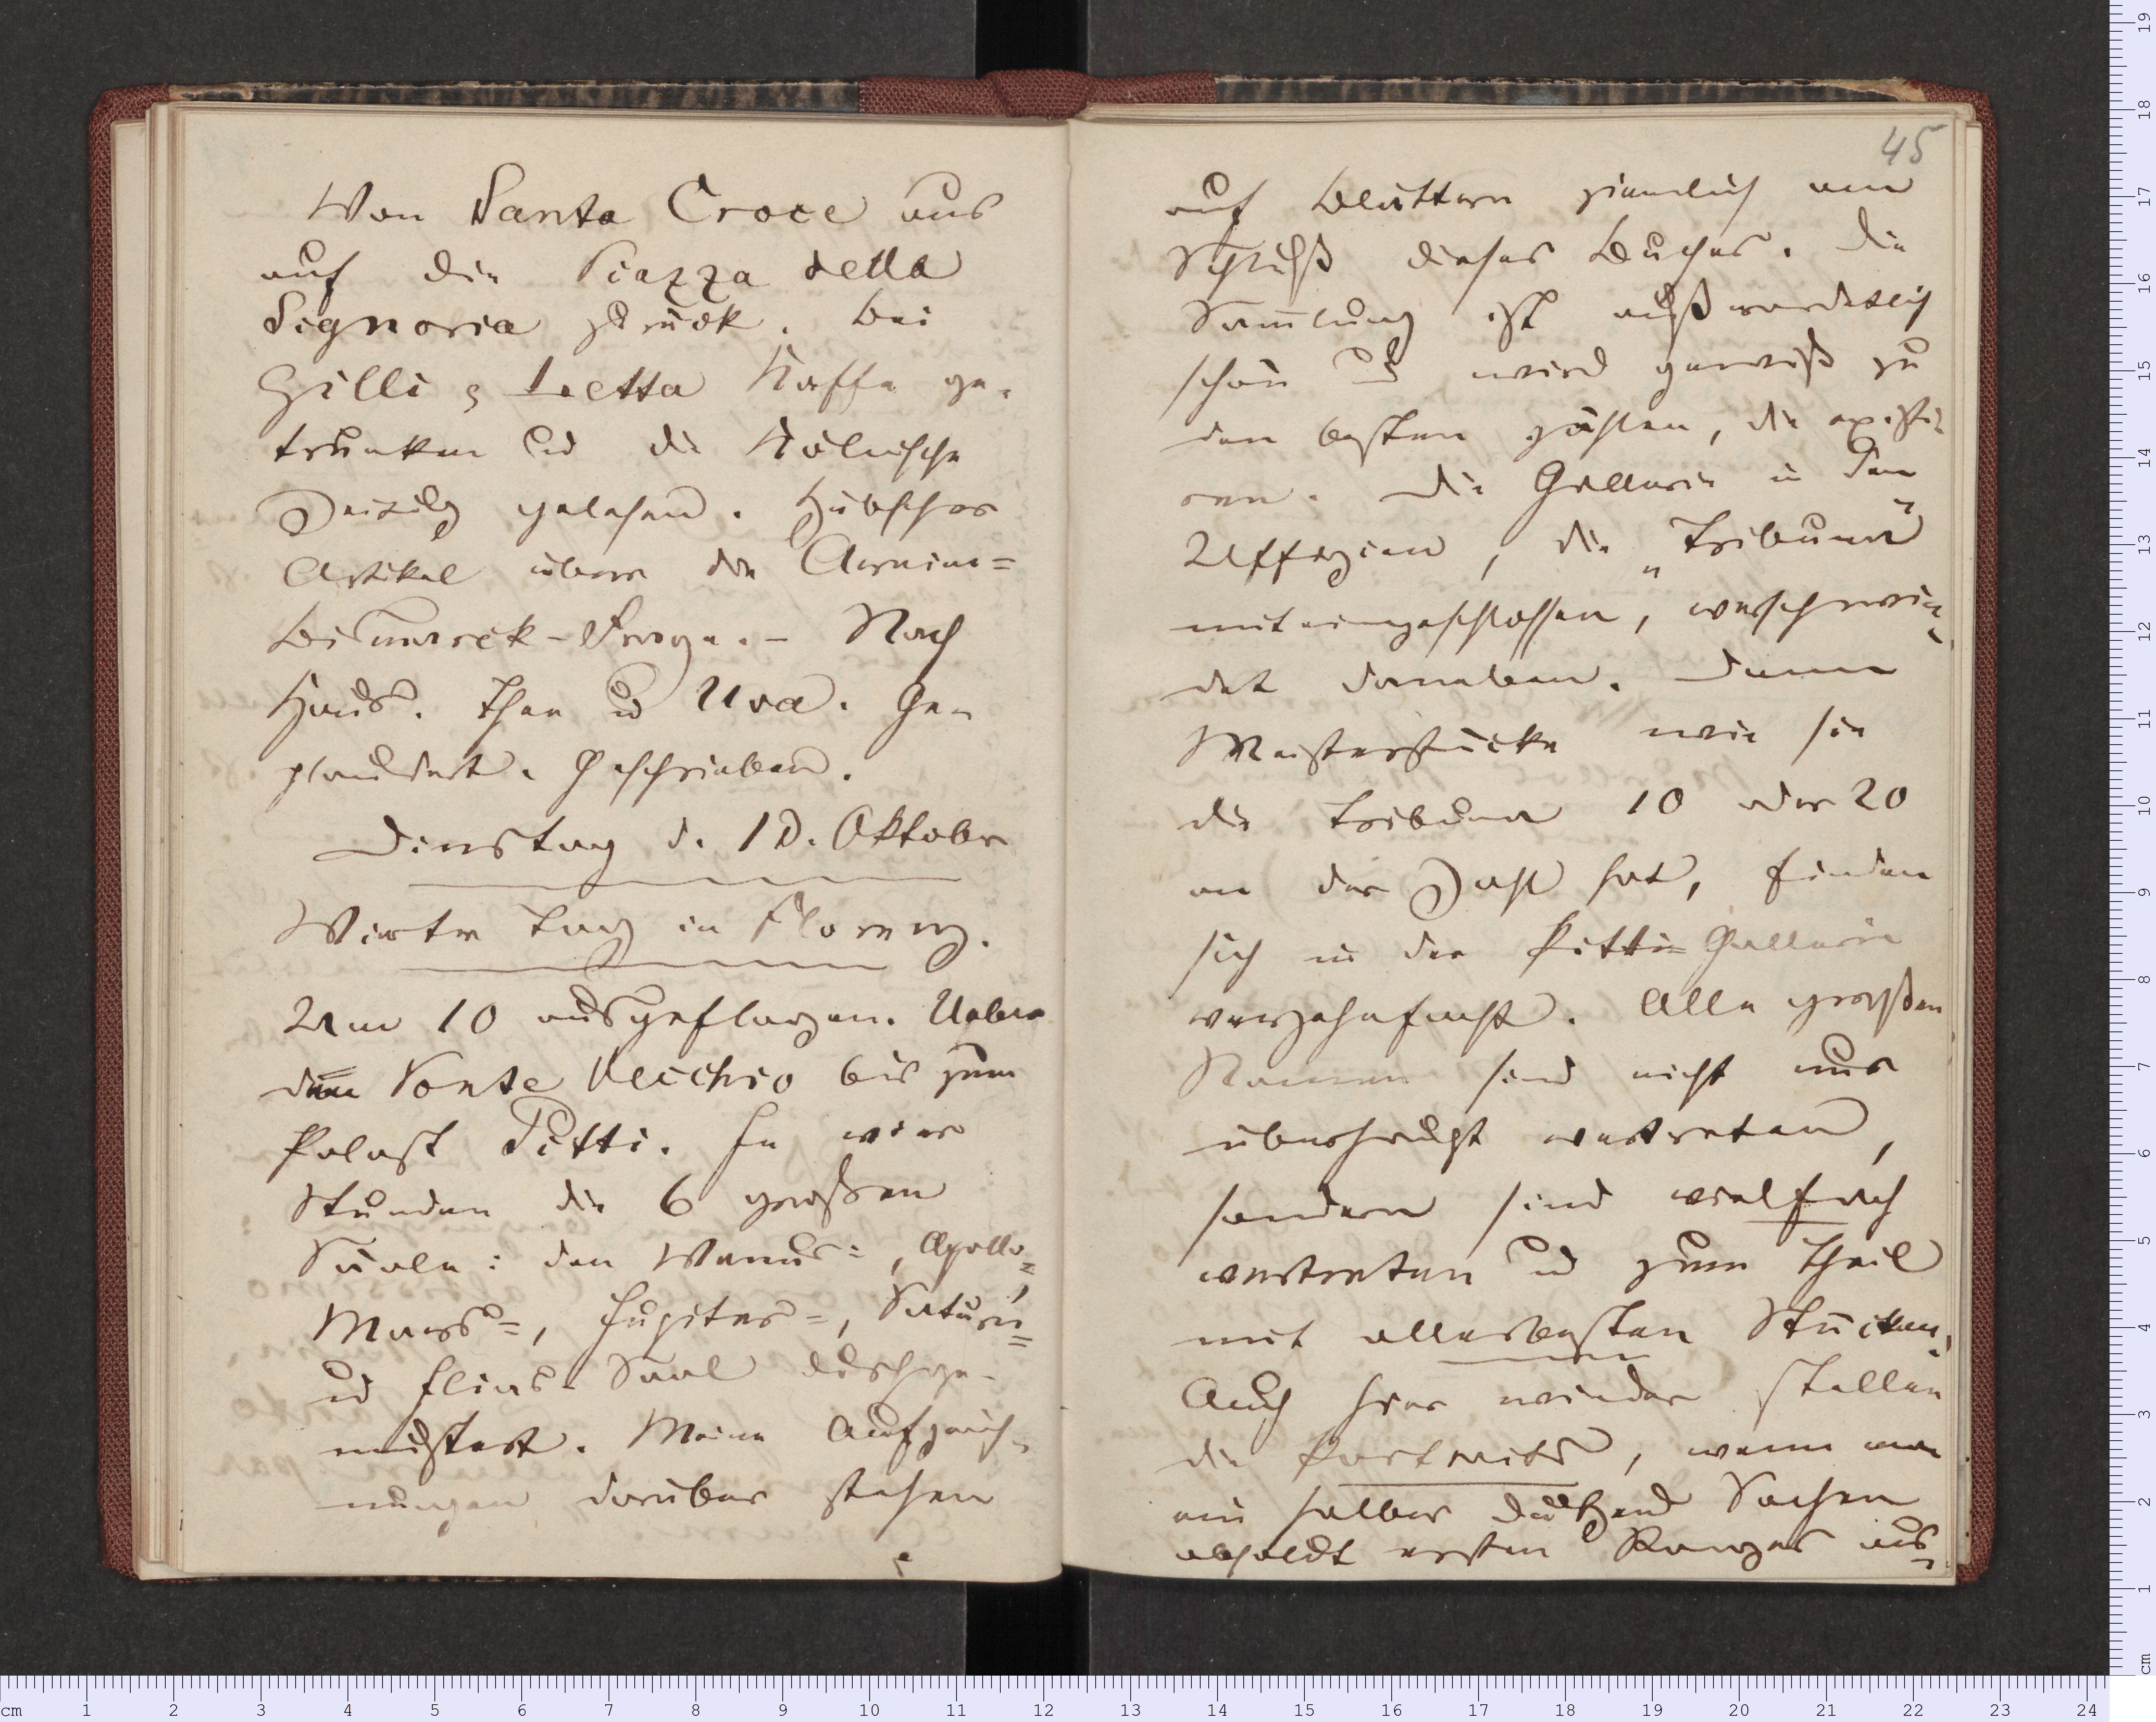 Von Santa Croce aus
auf die Piazza della
Signoria zurück. Bei
Gilli & Letta Kaffe ge-
trunken und die Kölnische
Zeitung gelesen. Hübscher
Artikel über die Arnim=
Bismarck-Frage. – Nach
Haus. Thee und Uva. Ge-
plaudert. Geschrieben.
Dinstag d. 13. Oktober
Vierter Tag in Florenz.
Um 10 ausgeflogen. Ueber
den Ponte Vecchio bis zum
Palast Pitti. In vier
Stunden die 6 großen
Säale: den Venus=, Apollo=,
Mars=, Jupiter=, Saturn=
und Ilias-Saal durchge-
mustert. Meine Aufzeich-
nungen darüber stehen
45
auf Blättern ziemlich am
Schluß dieses Buches. Die
Samlung ist außerordentlich
schön und wird gewiß zu
den besten zählen, die existi-
ren. Die Gallerie in den
Uffizien, die „Tribuna“
miteingeschlossen, verschwin-
det daneben. Denn
Meisterstücke wie sie
die Tribuna 10 oder 20
an der Zahl hat, finden
sich in der Pitti-Gallerie
verzehnfacht. Alle großen
Namen sind nicht nur
überhaupt vertreten,
sondern sind vielfach
vertreten und zum Theil
mit allerbesten Stücken.
Auch hier wieder stellen
die Portraits, wenn man
ein halbes Dutzend Sachen
absolut ersten Ranges aus-